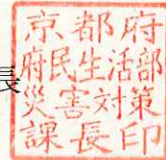 長
京都府
府民生活部
災害対策
課長印